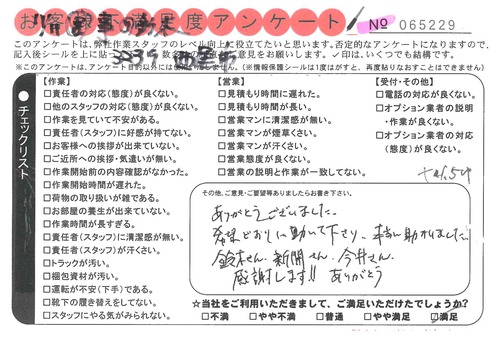 お客様不満足度アンケート
№ 065229
このアンケートは、弊社作業スタッフのレベル向上に役立てたいと思います。否定的なアンケートになりますので、
記入後シールを上に貼っ
です。✓印は、いくつでも結構です。
※このアンケートは、アンケート目的以外には使用いたしません。(※情報保護シールは1度はがすと、再度貼りなおすことはできません)
チェックリスト
【作業】
□責任者の対応(態度)が良くない。
□他のスタッフの対応(態度)が良くない。
□作業を見ていて不安がある。
□責任者(スタッフ)に好感が持てない。
□お客様への挨拶が出来ていない。
□ご近所への挨拶・気遣いが無い。
□作業開始前の内容確認がなかった。
□作業開始時間が遅れた。
□荷物の取り扱いが雑である。
□お部屋の養生が出来ていない。
□作業時間が長すぎる。
□責任者(スタッフ)に清潔感が無い。
□責任者(スタッフ)が汗くさい。
□トラックが汚い。
□梱包資材が汚い。
□運転が不安(下手)である。
□靴下の履き替えをしてない。
□スタッフにやる気がみられない。
【営業】
□見積もり時間に遅れた。
□見積もり時間が長い。
□営業マンに清潔感が無い。
□営業マンが煙草くさい。
□営業マンが汗くさい。
□営業態度が良くない。
□営業の説明と作業が一致してない。
【受付・その他】
□電話の対応が良くない。
□オプション業者の説明・作業が良くない。
□オプション業者の対応(態度)が良くない。
その他、ご意見・ご要望等ありましたらお書き下さい。
ありがとうございました。
希望どおりに動いて下さり、本当に助かりました。
鈴木さん、新開さん、今井さん、
感謝します!! ありがとう
☆当社をご利用いただきまして、ご満足いただけたでしょうか?
□不満 □やや不満 □普通 □やや満足 ☑満足